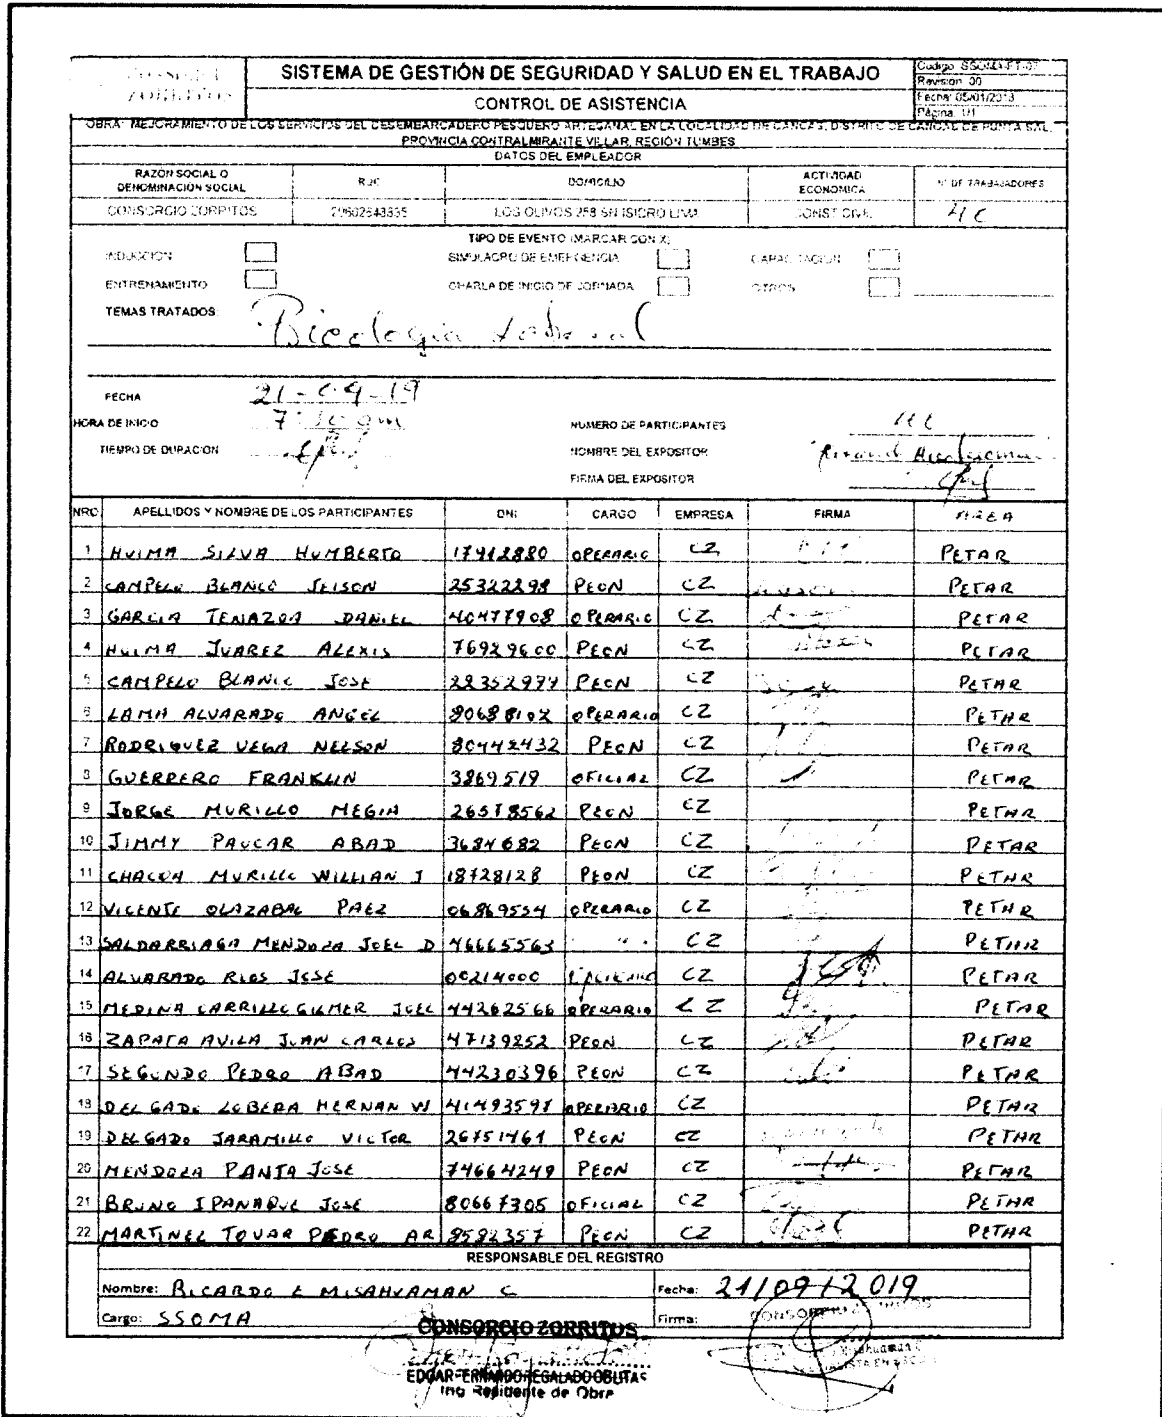 CONSORCIO
ZORRITOS
SISTEMA DE GESTIÓN DE SEGURIDAD Y SALUD EN EL TRABAJO
CONTROL DE ASISTENCIA
Revisión: 00
Fecha: 05/01/2013
Página: 1/1
OBRA: MEJORAMIENTO DE LOS SERVICIOS DEL DESEMBARCADERO PESQUERO ARTESANAL EN LA LOCALIDAD DE CANCAS, DISTRITO DE CANOAS DE PUNTA SAL,
PROVINCIA CONTRALMIRANTE VILLAR, REGIÓN TUMBES
DATOS DEL EMPLEADOR
RAZÓN SOCIAL O DENOMINACIÓN SOCIAL RUC DOMICILIO ACTIVIDAD ECONOMICA N° DE TRABAJADORES
CONSORCIO ZORRITOS LOS OLIVOS 258 SN ISIDRO LIMA CONST CIVIL
TIPO DE EVENTO (MARCAR CON X)
INDUCCIÓN SIMULACRO DE EMERGENCIA CAPACITACIÓN
ENTRENAMIENTO CHARLA DE INICIO DE JORNADA OTROS
TEMAS TRATADOS:
FECHA 21-09-19
HORA DE INICIO 7:30 am NUMERO DE PARTICIPANTES
TIEMPO DE DURACION NOMBRE DEL EXPOSITOR
FIRMA DEL EXPOSITOR
NRO APELLIDOS Y NOMBRE DE LOS PARTICIPANTES DNI CARGO EMPRESA FIRMA AREA
1 HUIMA SILVA HUMBERTO 17412880 OPERARIO CZ PETAR
2 CAMPELO BLANCO JEISON 25322298 PEON CZ PETAR
3 GARCIA TENAZOA DANIEL 40477908 OPERARIO CZ PETAR
4 HUIMA JUAREZ ALEXIS 76929600 PEON CZ PETAR
5 CAMPELO BLANCO JOSE PEON CZ PETAR
6 LAMA ALVARADO ANGEL OPERARIO CZ PETAR
7 RODRIGUEZ VEGA NELSON 80442432 PEON CZ PETAR
8 GUERRERO FRANKLIN 3869519 OFICIAL CZ PETAR
9 JORGE MURILLO MEGIA 26578562 PEON CZ PETAR
10 JIMMY PAUCAR ABAD 3684682 PEON CZ PETAR
11 CHACON MURILLO WILLIAN J 18728128 PEON CZ PETAR
12 VICENTE OLAZABAL PAEZ 06869554 OPERARIO CZ PETAR
13 SALDARRIAGA MENDOZA JOEL D 46665563 " CZ PETAR
14 ALVARADO RIOS JOSE 00214000 CZ PETAR
15 MEDINA CARRILLO GILMER JOEL 44262566 OPERARIO CZ PETAR
16 ZAPATA AVILA JUAN CARLOS 47139252 PEON CZ PETAR
17 SEGUNDO PEDRO ABAD 44230396 PEON CZ PETAR
18 DELGADO LOBERA HERNAN W 41493597 OPERARIO CZ PETAR
19 DELGADO JARAMILLO VICTOR 26751461 PEON CZ PETAR
20 MENDOZA PANTA JOSE 74664249 PEON CZ PETAR
21 BRUNO IPANAQUE JOSE 80667305 OFICIAL CZ PETAR
22 MARTINEZ TOVAR PEDRO AR 8582357 PEON CZ PETAR
RESPONSABLE DEL REGISTRO
Nombre: RICARDO L MISAHUAMAN C Fecha: 21/09/2019
Cargo: SSOMA Firma:
CONSORCIO ZORRITOS
EDGAR FERNANDO REGALADO OBLITAS
Ing Residente de Obra